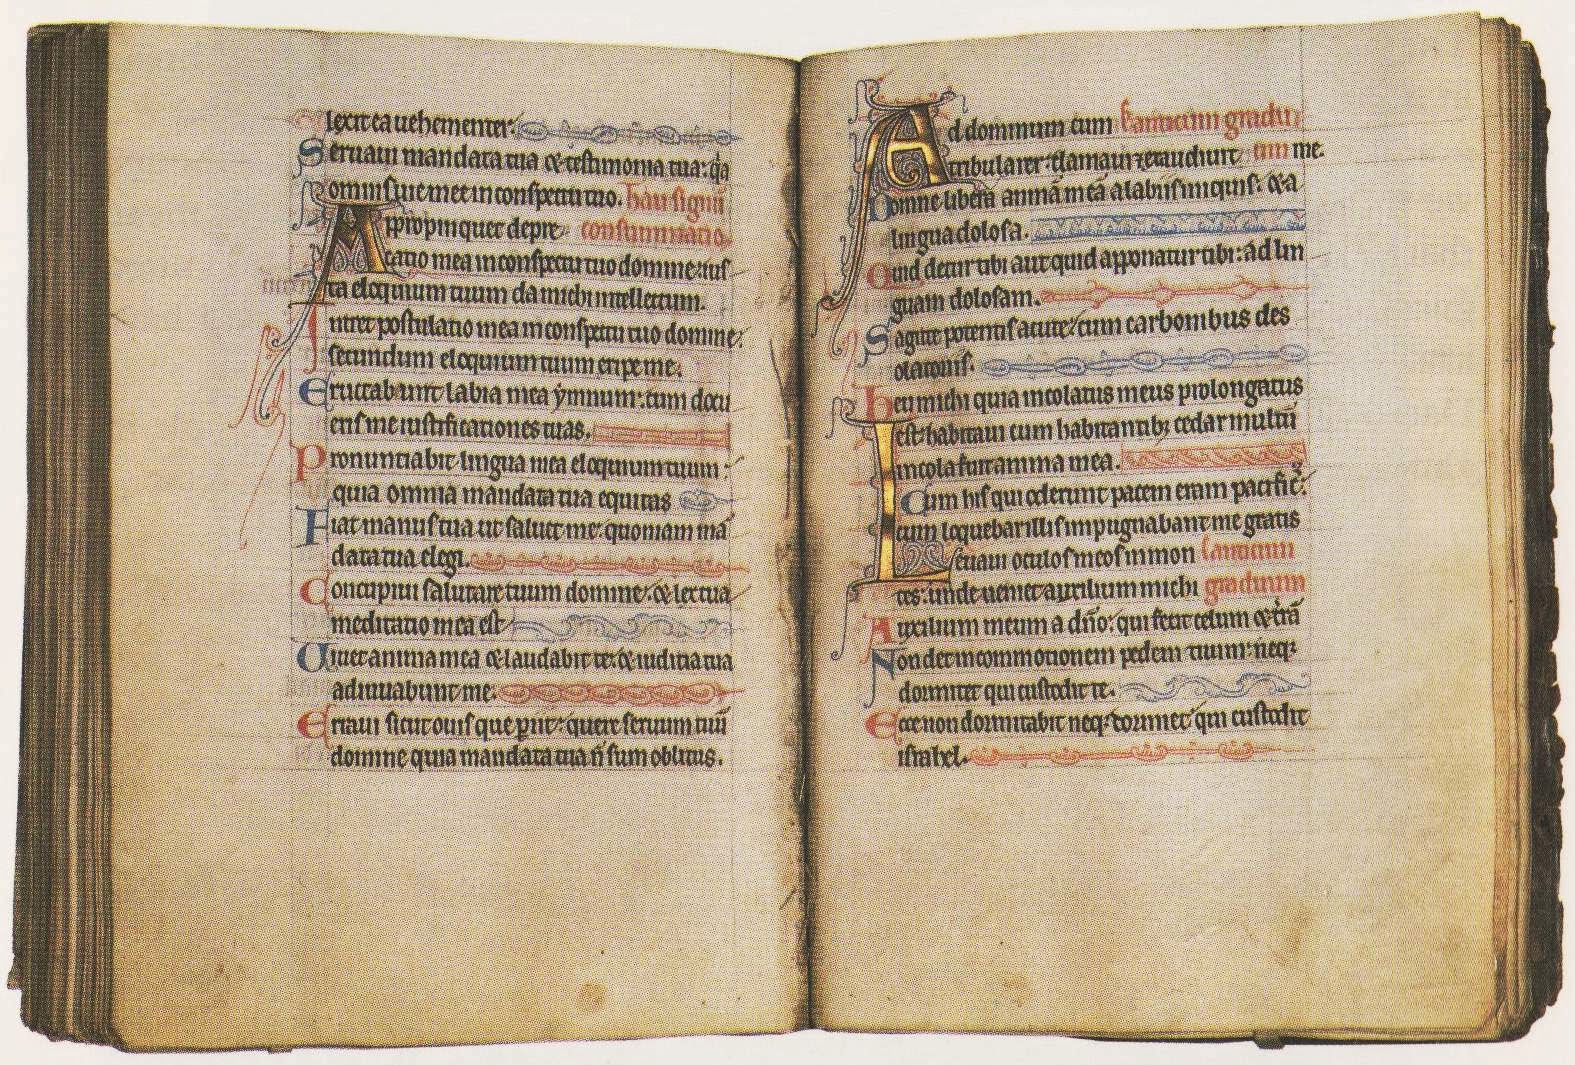 lexit ea vehementer:
Servavi mandata tua & testimonia tua: q̇a
omnis vie mee in conspectu tuo. hau signū
Appropinquet depre consummatio.
catio mea in conspectu tuo domine: ius
ta eloquium tuum da michi intellectum.
Intret postulatio mea in conspectu tuo domine:
secundum eloquium tuum eripe me.
Eructabunt labia mea ẏmnum: cum docu
eris me iustificationes tuas.
Pronuntiabit lingua mea eloquium tuum:
quia omnia mandata tua equitas
Fiat manus tua ut salvet me: quoniam mā
data tua elegi.
Concupivi salutare tuum domine: & lex tua
meditatio mea est
Vivet anima mea & laudabit te: & iuditia tua
adiuvabunt me.
Erravi sicut ovis que ꝑiit: quere servum tuū
domine quia mandata tua ñ sum oblitus.
Ad dominum cum Canticum gradu
tribularer: clamavi ⁊ exaudivit um me.
Domine libera animā meā a labiis iniquis: & a
lingua dolosa.
Quid detur tibi aut quid apponatur tibi: ad lin
guam dolosam.
Sagitte potentis acute: cum carbonibus des
olatoriis.
Heu michi quia incolatus meus prolongatus
est: habitavi cum habitantibꝫ cedar multū
incola fuit anima mea.
Cum his qui oderunt pacem eram pacificꝰ:
cum loquebar illis impugnabant me gratis
Levavi oculos meos in mon Canticum
tes: unde veniet auxilium michi graduum
Auxilium meum a dño: qui fecit celum & t̃rā
Non det in commotionem pedem tuum: neqꝫ
dormitet qui custodit te.
Ecce non dormitabit neqꝫ dormiet: qui custodit
israhel.